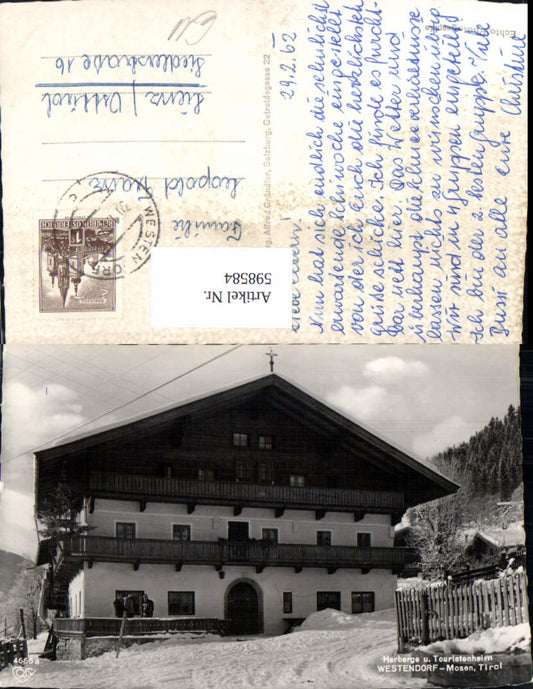 Echte Photographie
29.2.62
Liebe Eltern!
Nun hat sich endlich die sehnlichst
erwartende Schiwoche eingestellt
von der ich Euch die herzlichsten
Grüsse schicke. Ich finde es furcht-
bar nett hier. Das Wetter und
überhaupt die Schneeverhältnisse
lassen nichts zu wünschen übrig.
Wir sind in Gruppen eingeteilt
Ich bin der 2. besten Gruppe. Viele
Bussi an alle eure Christine
Alfred Gründler, Salzburg, Getreidegasse 22
Familie
Leopold
Lienz / Osttirol
Siedlerstraße 16
WESTENDORF
REPUBLIK ÖSTERREICH
Artikel Nr.
598584
4666a
Herberge u. Touristenheim
WESTENDORF - Mosen, Tirol